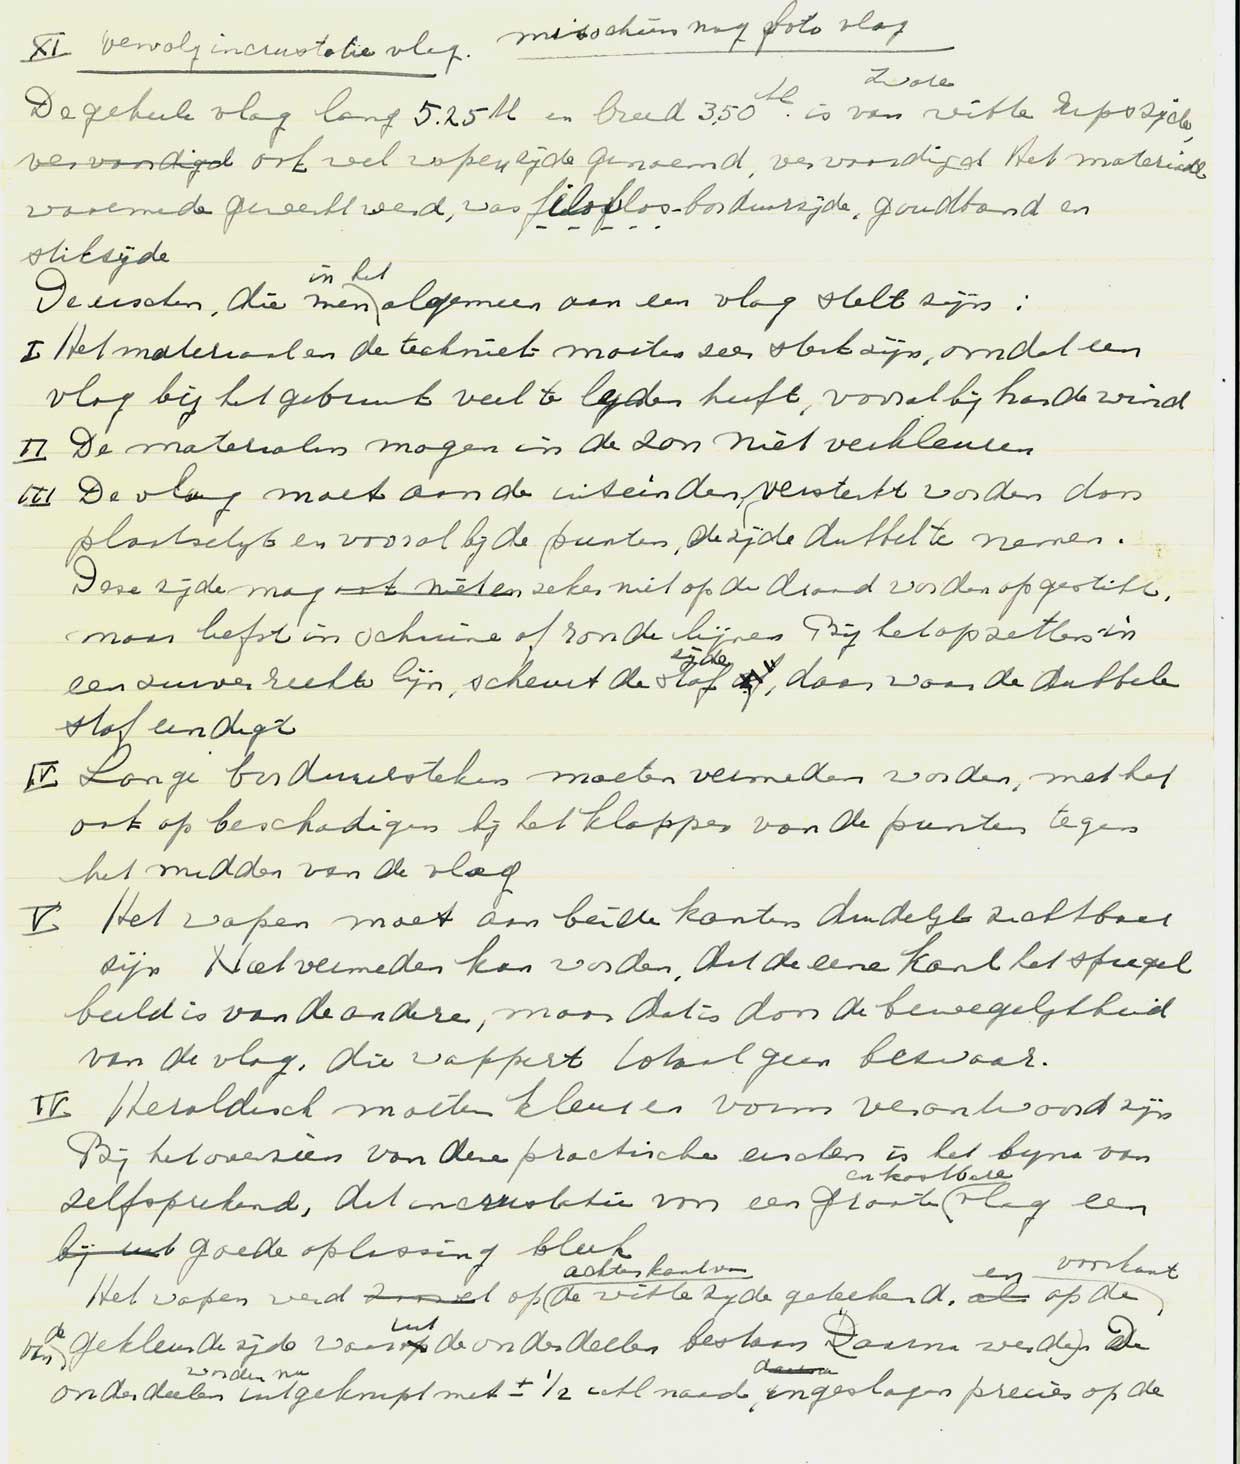 XI vervolg incrustatie vlag. misschien nog foto vlag
zware
De geheele vlag lang 5.25 M en breed 3.50 M. is van witte ripszijde,
vervaardigd ook wel wapenzijde genoemd, vervaardigd Het materiaal
waarmede gewerkt werd, was filoflos-borduurzijde, goudband en
stikzijde
in het
De eischen, die men algemeen aan een vlag stelt zijn :
I Het materiaal en de techniek moeten zeer sterk zijn, omdat een
vlag bij het gebruik veel te lijden heeft, vooral bij harde wind
II De materialen mogen in de zon niet verkleuren
III De vlag moet aan de uiteinden versterkt worden door
plaatselijk en vooral bij de punten, de zijde dubbel te nemen.
Deze zijde mag ook niet en zeker niet op de draad worden opgestikt,
maar liefst in schuine of ronde lijnen Bij het opzetten in
zijde
een zuiver rechte lijn, scheurt de stof af, daar waar de dubbele
stof eindigt
IV Lange borduursteken moeten vermeden worden, met het
oog op beschadigen bij het klappen van de punten tegen
het midden van de vlag
V Het wapen moet aan beide kanten duidelijk zichtbaar
zijn Niet vermeden kan worden, dat de eene kant het spiegel
beeld is van de andere, maar dat is door de bewegelijkheid
van de vlag, die wappert totaal geen bezwaar.
IV Heraldisch moeten kleur en vorm verantwoord zijn
Bij het overzien van deze practische eischen is het bijna van
en kostbare
zelfsprekend, dat incrustatie van een groote vlag een
bij uit goede oplossing bleek
achterkant van en voorkant
Het wapen werd op de witte zijde geteekend, als op de
van de gekleurde zijde waar uit de onderdeelen bestaan Daarna werden De
worden nu daarna
onderdeelen uitgeknipt met ± 1/2 cM naad, ingeslagen precies op de